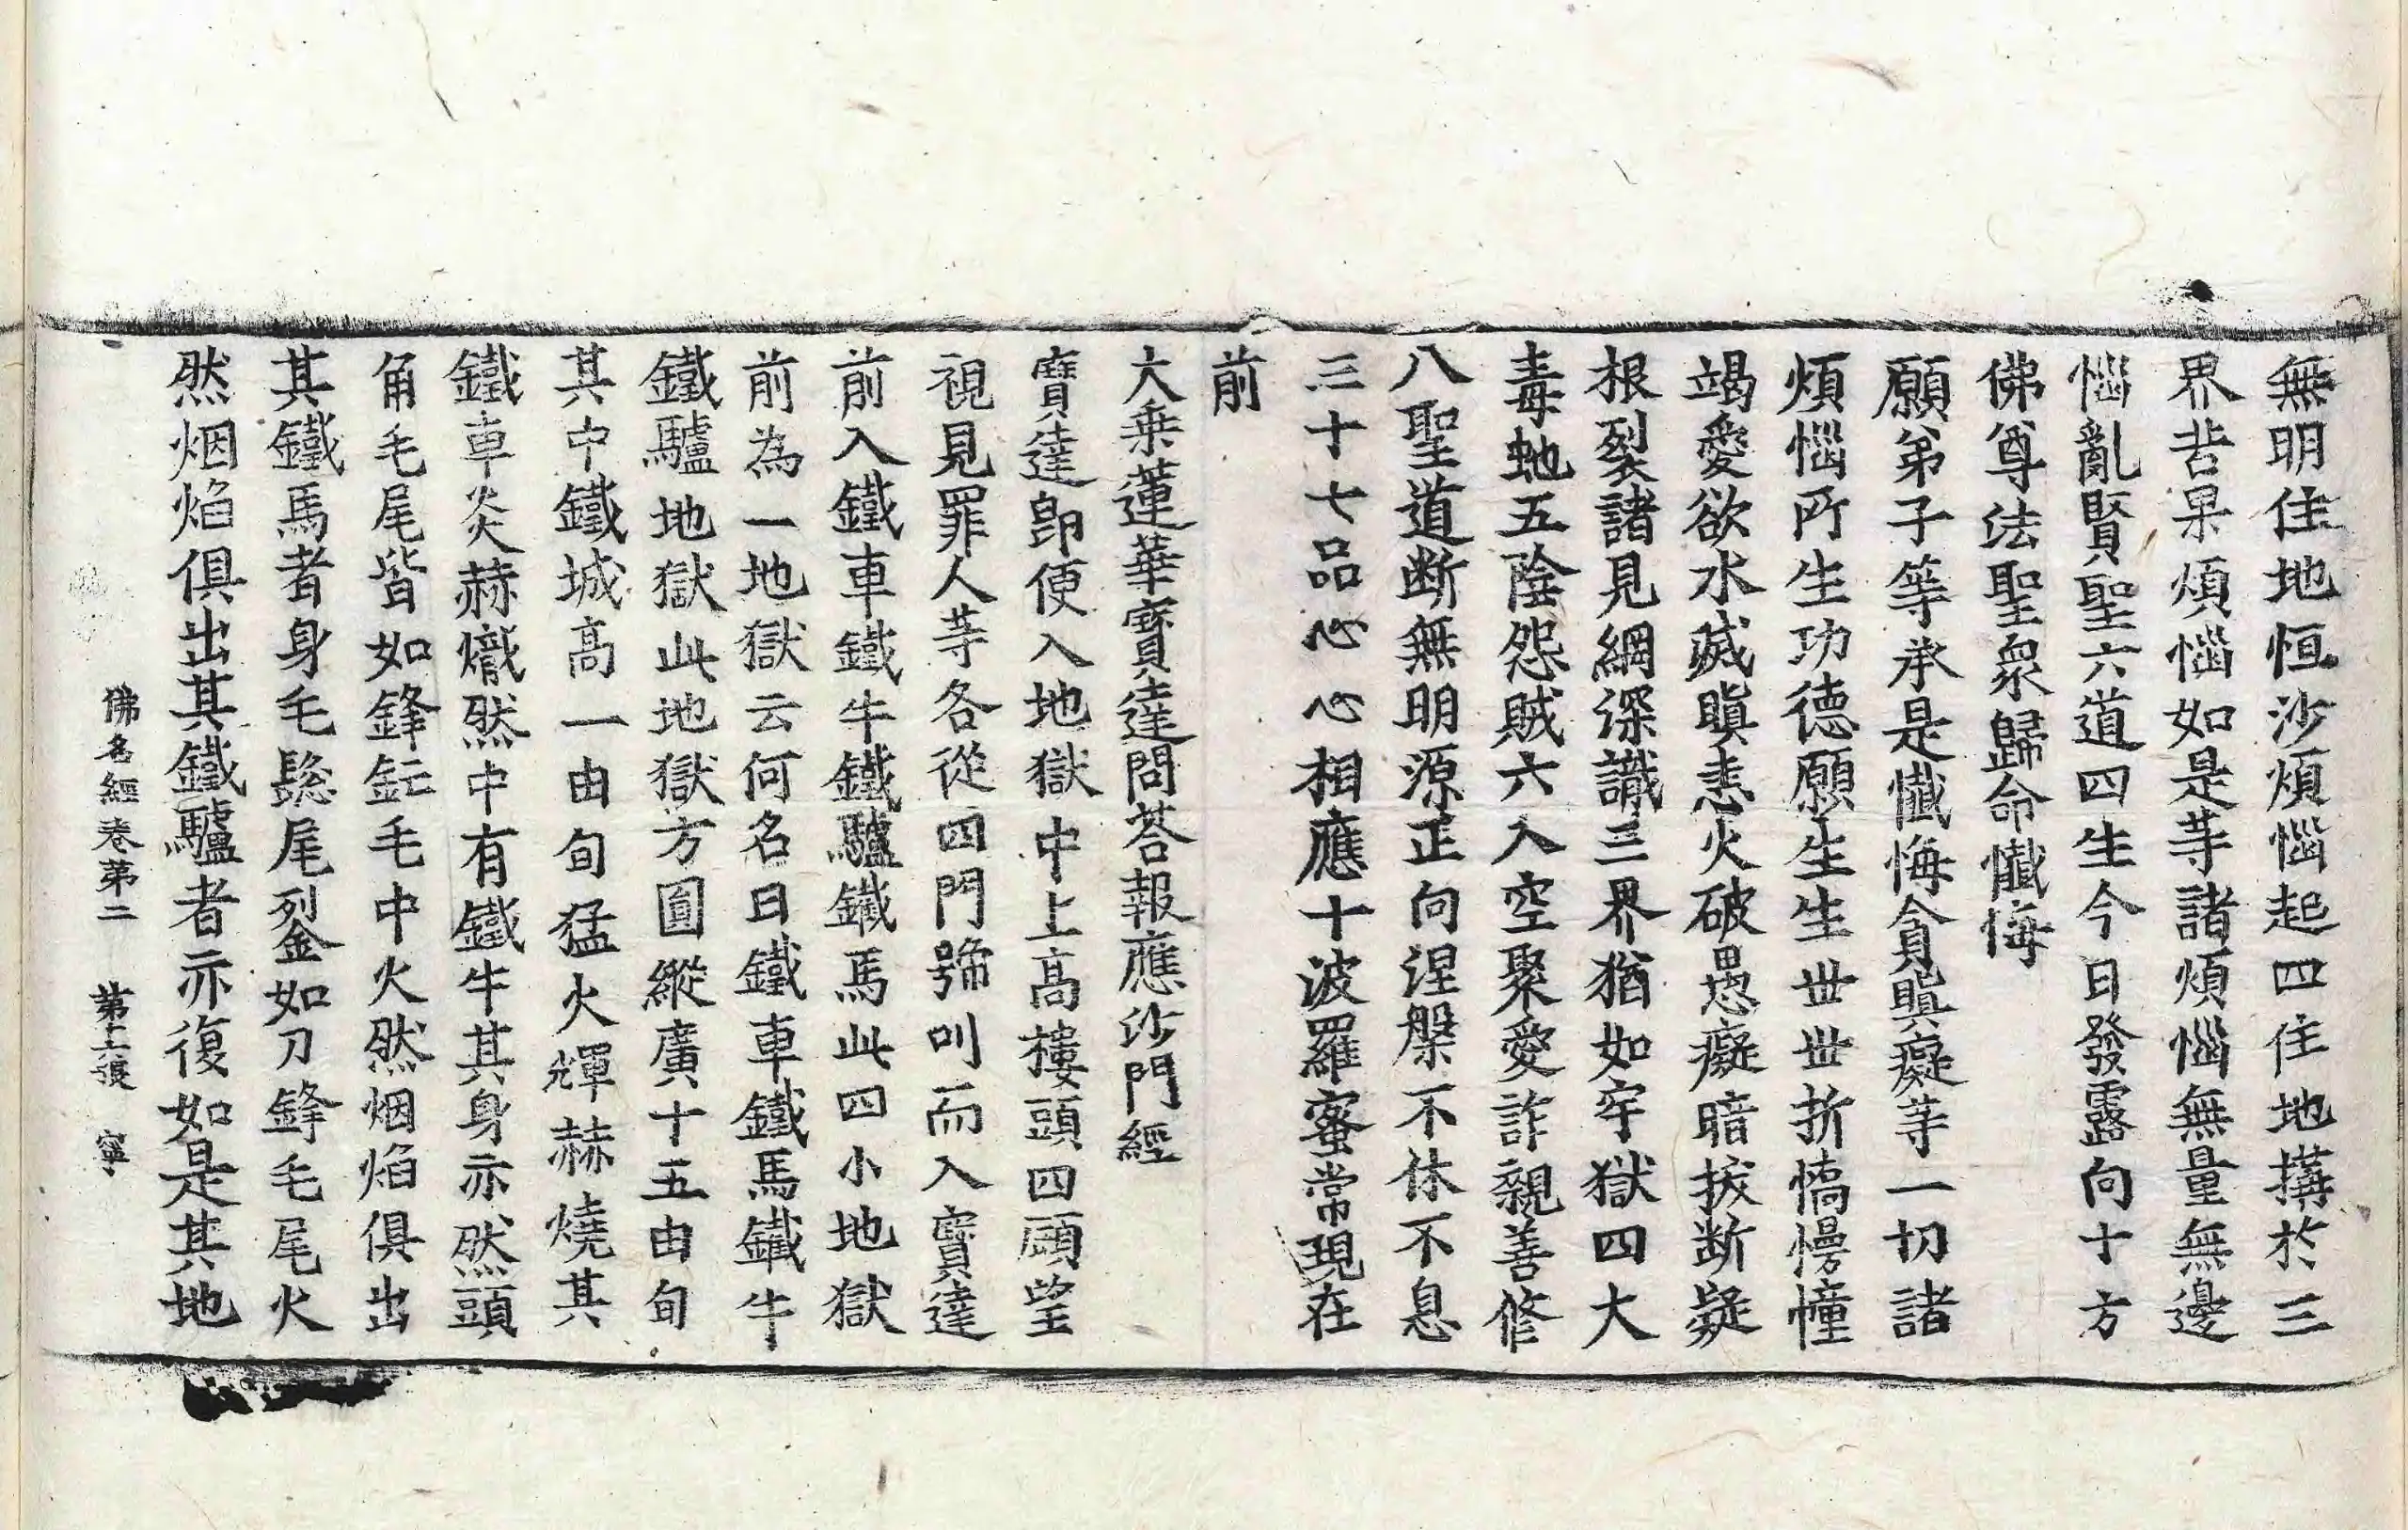 無明住地恒沙煩惱起四住地搆於三
界苦果煩惱如是等諸煩惱無量無邊
惱亂賢聖六道四生今日發露向十方
佛尊法聖衆歸命懺悔
願弟子等承是懺悔貪瞋癡等一切諸
煩惱所生功德願生生世世折憍慢幢
竭愛欲水滅瞋恚火破愚癡暗拔斷疑
根裂諸見網深識三界猶如牢獄四大
毒虵五陰怨賊六入空聚愛詐親善修
八聖道断無明源正向涅槃不休不息
三十七品心心相應十波羅蜜常現在
前
大乗蓮華寶達問荅報應沙門經
寶達即便入地獄中上高樓頭四顧望
視見罪人等各從四門號叫而入寶達
前入鐵車鐵牛鐵驢鐵馬此四小地獄
前為一地獄云何名曰鐵車鐵馬鐵牛
鐵驢地獄此地獄方圓縱廣十五由旬
其中鐵城高一由旬猛火輝赫燒其
鐵車炎赫熾然中有鐵牛其身亦然頭
角毛尾皆如鋒鋩毛中火然烟焰俱出
其鐵馬者身毛騣尾如刀鋒毛尾火
然烟焰俱出其鐵驢者亦復如是其地
佛名經卷第二 第十二張 寧